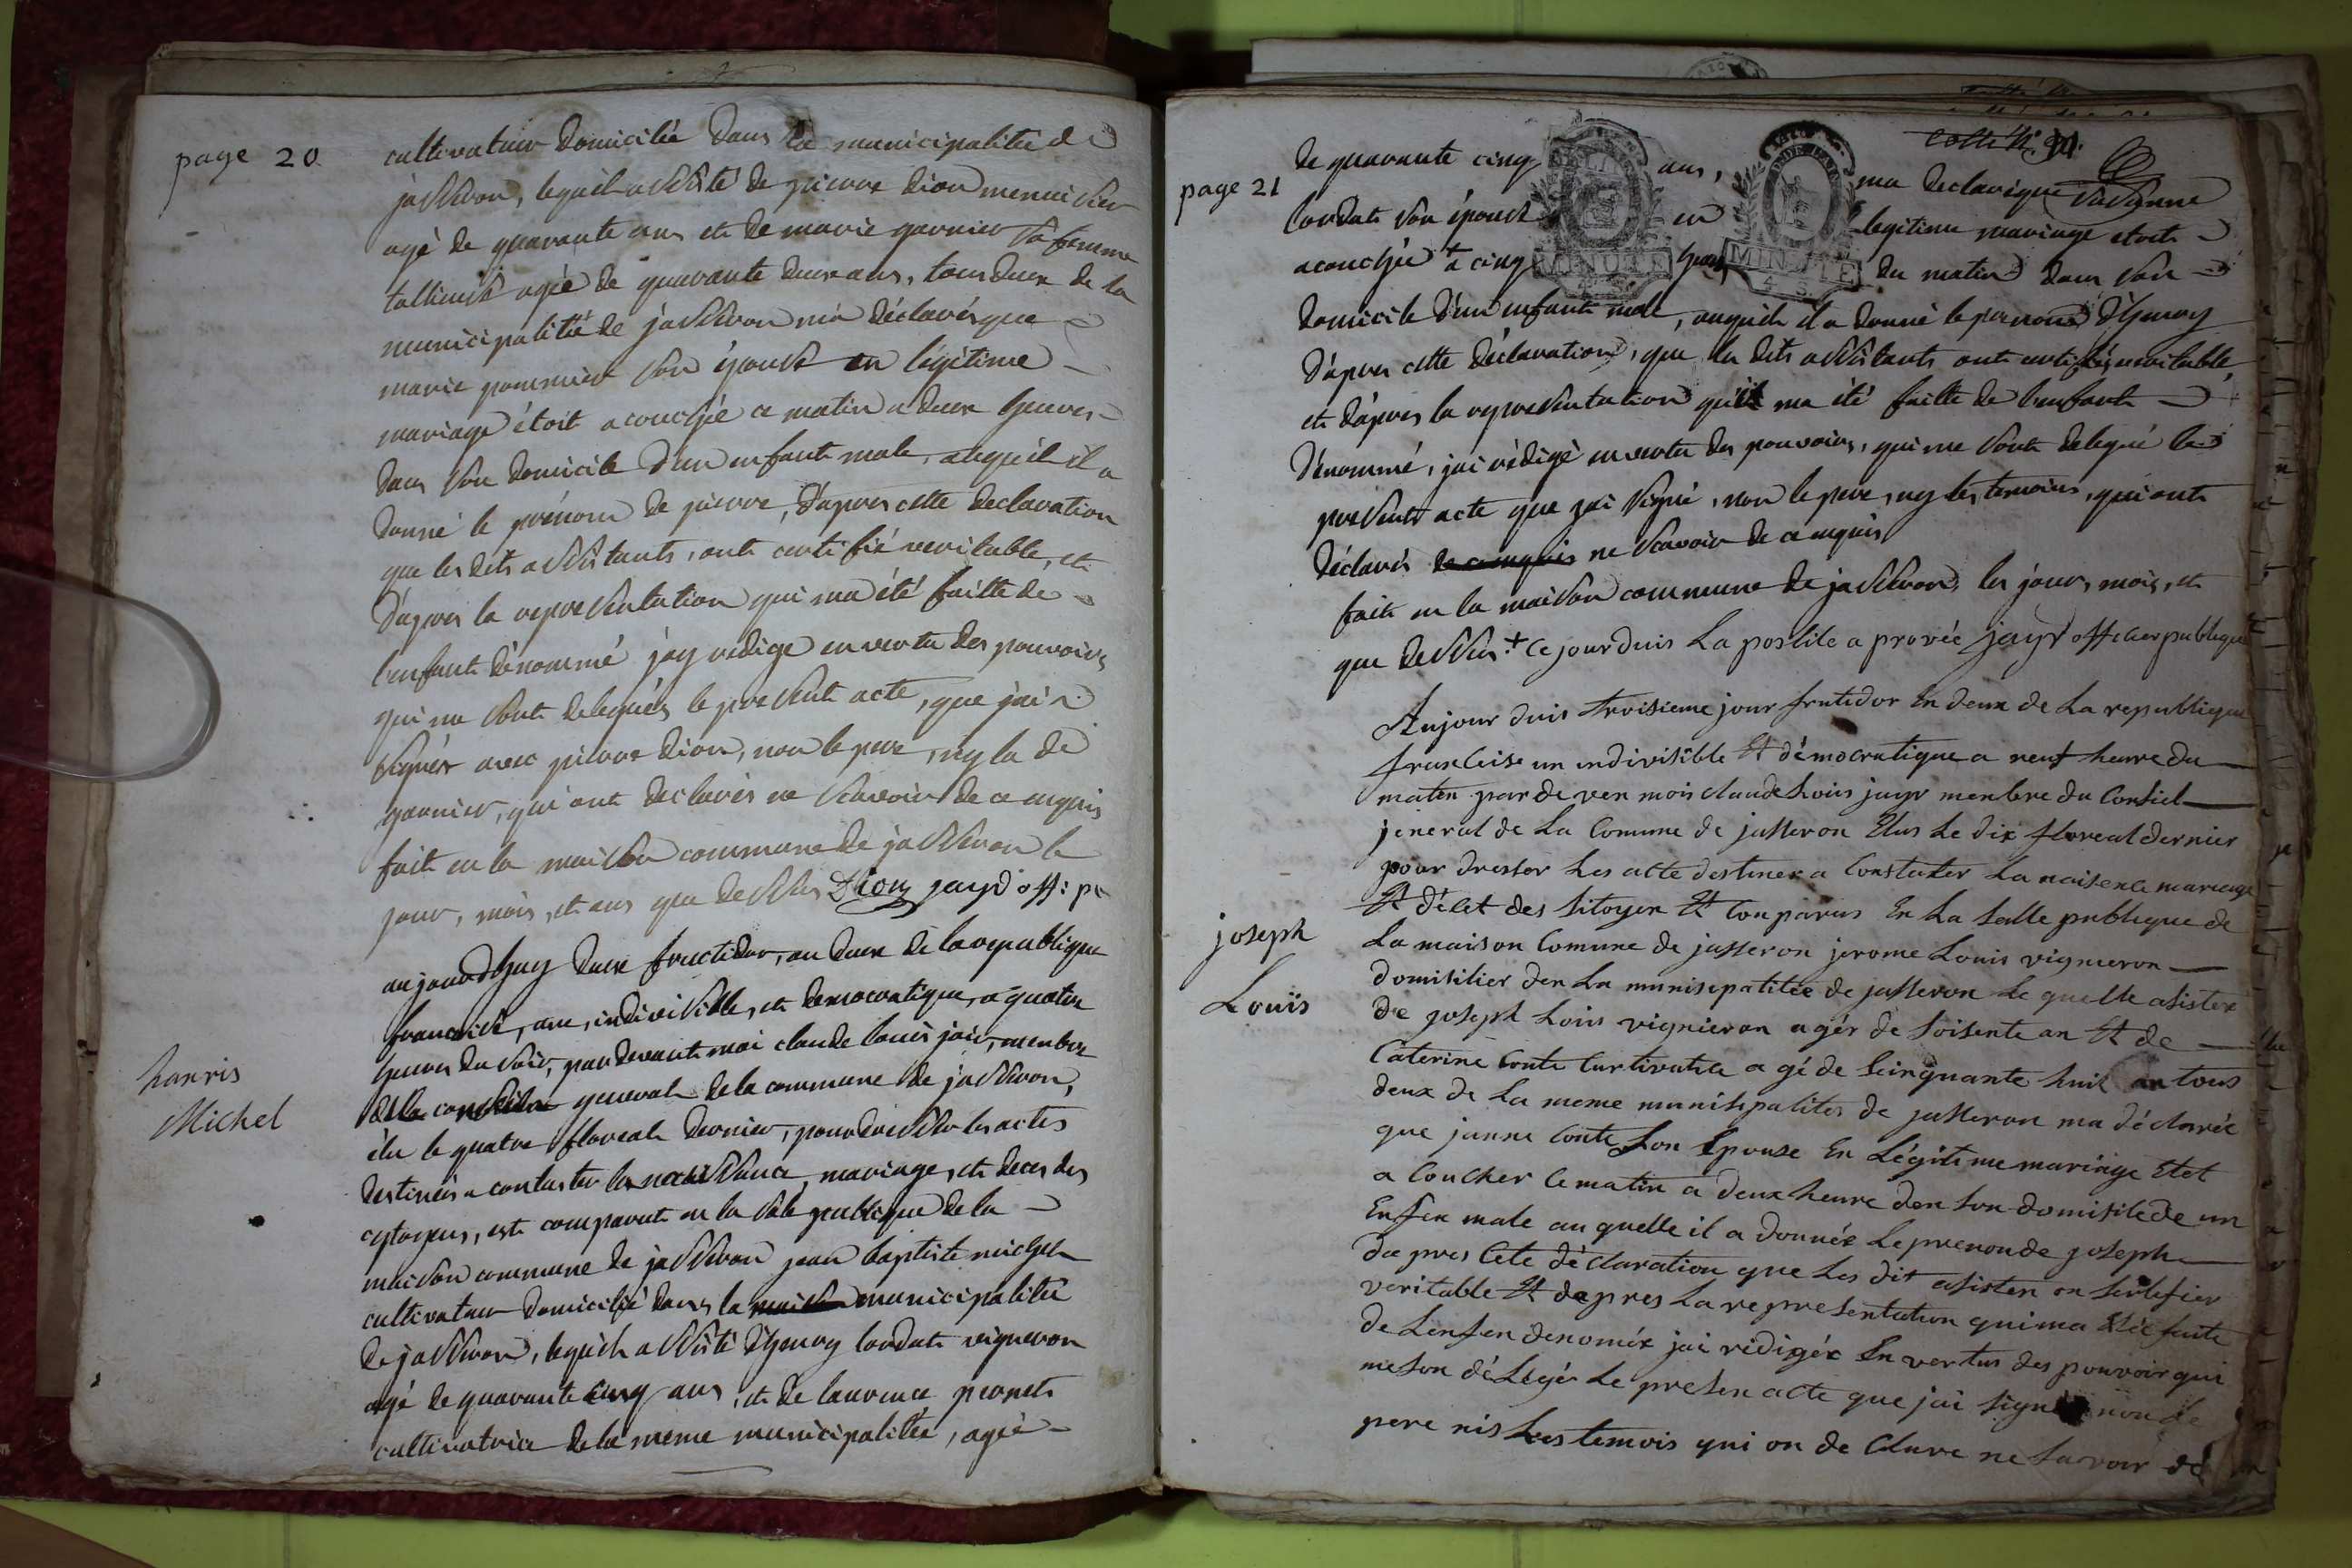 page 20
cultivateur domicilié dans la municipalitée de
jasseron, lequel assisté de pierre dion menuisier
agé de quarante ans et de marie garnier sa femme
tallieuse agée de quarante deux ans, tous deux de la
municipalitée de jasseron m'a déclarés que
marie pommier son épouse en légitime
mariage étoit acouchée ce matin a deux heures
dans son domicile d'un enfant male, auquel il a
donné le prénom de pierre, d'apres cette declaration
que les dits assistants, ont certifié veritable, et
d'apres la representation qui ma été faitte de
l'enfant dénommé j'ay redige en vertu des pouvoirs
qui me sont delegués le present acte, que j'ai
signér avec pierre dion, non le pere, ny la de
garnier, qui ont declarés ne scavoir de ce enquis
fait en la maison commune de jasseron le
jour, mois, et ans que dessus Dion jayr off: p
hanris
Michel
aujourdhuy deux fructidor, an deux de la republique
francaise, une, indivisible, et democratique, a quatre
heures du soir, pardevant moi claude louis jair, membre
de la conseila general de la commune de jasseron,
élu le quatre floreal dernier, pour dresser les actes
destinés a constater les naissance, mariage, et deces des
cytoyens, est comparut en la sale publique de la
maison commune de jasseron jean baptiste michel
cultivateur domicilié dans la maison municipalitée
de jasseron, lequel assisté d'henry loudat vigneron
agé de quarante cinq ans, et de laurence pernet
cultivatrice de la meme municipalitée, agée
cotté N.
page 21
de quarante cinq ans, ma declaré que
loudat son épouse en legitime mariage etoit
acouchée + a cinq heures du matin dans son
MINUTE MINUTE
domicile d'un enfant male, auquel il a donné le prenom d'henry
d'apres cette declaration, que les dits assistants ont certifiés veritable,
et d'apres la representation qui ma été faitte de l'enfant
dénommé, j'ai rédigé en vertu des pouvoirs, qui me sont delegué le
present acte que j'ai signé, non le pere, ny les temoins, qui ont
déclarés de ce enquis ne scavoir de ce enquis
fait en la maison commune de jasseron, les jour, mois, et
que dessus. + Ce jourduis La postile a provée jayr officier publique
joseph
Louïs
Aujour duis troisieme jour frutidor En deux de La republique
francaise un indivisible Et démocratique a neuf heure du
maten par de ven mois claude Louis jayr menbre du Consiel
jeneral de La Comune de jasseron Elus Le dix floreal dernier
pour dresser Les acte destiner a Constater La naisence mariage
Et décet des sitoyen Et Conparus En La salle publique de
La maison Comune de jasseron jerome Louis vigneron
domisilier den La munisepalitée de jasseron Le quelle asister
de joseph Louis vignieron agér de soisente an Et de
Caterine Conte Curtivatrice a gé de seinquante huit an tous
deux de La meme munisipalites de jasseron ma déclarée
que janne Conte Son Epouse En Légitime mariage Etet
a Coucher Ce matin a deux heure den Son domisile de un
Enfen male au quelle il a donnér Le prenon de joseph
da pres Cete déclaration que Les dit asisten on sertefier
veritable Et dapres La representation qui ma Etée faite
de Lenfen denomér jai redigér En vertus des pouvoir qui
me son délegér Le presen acte que jai signé non le
pere nis Les temois qui on de Clare ne Savoir de